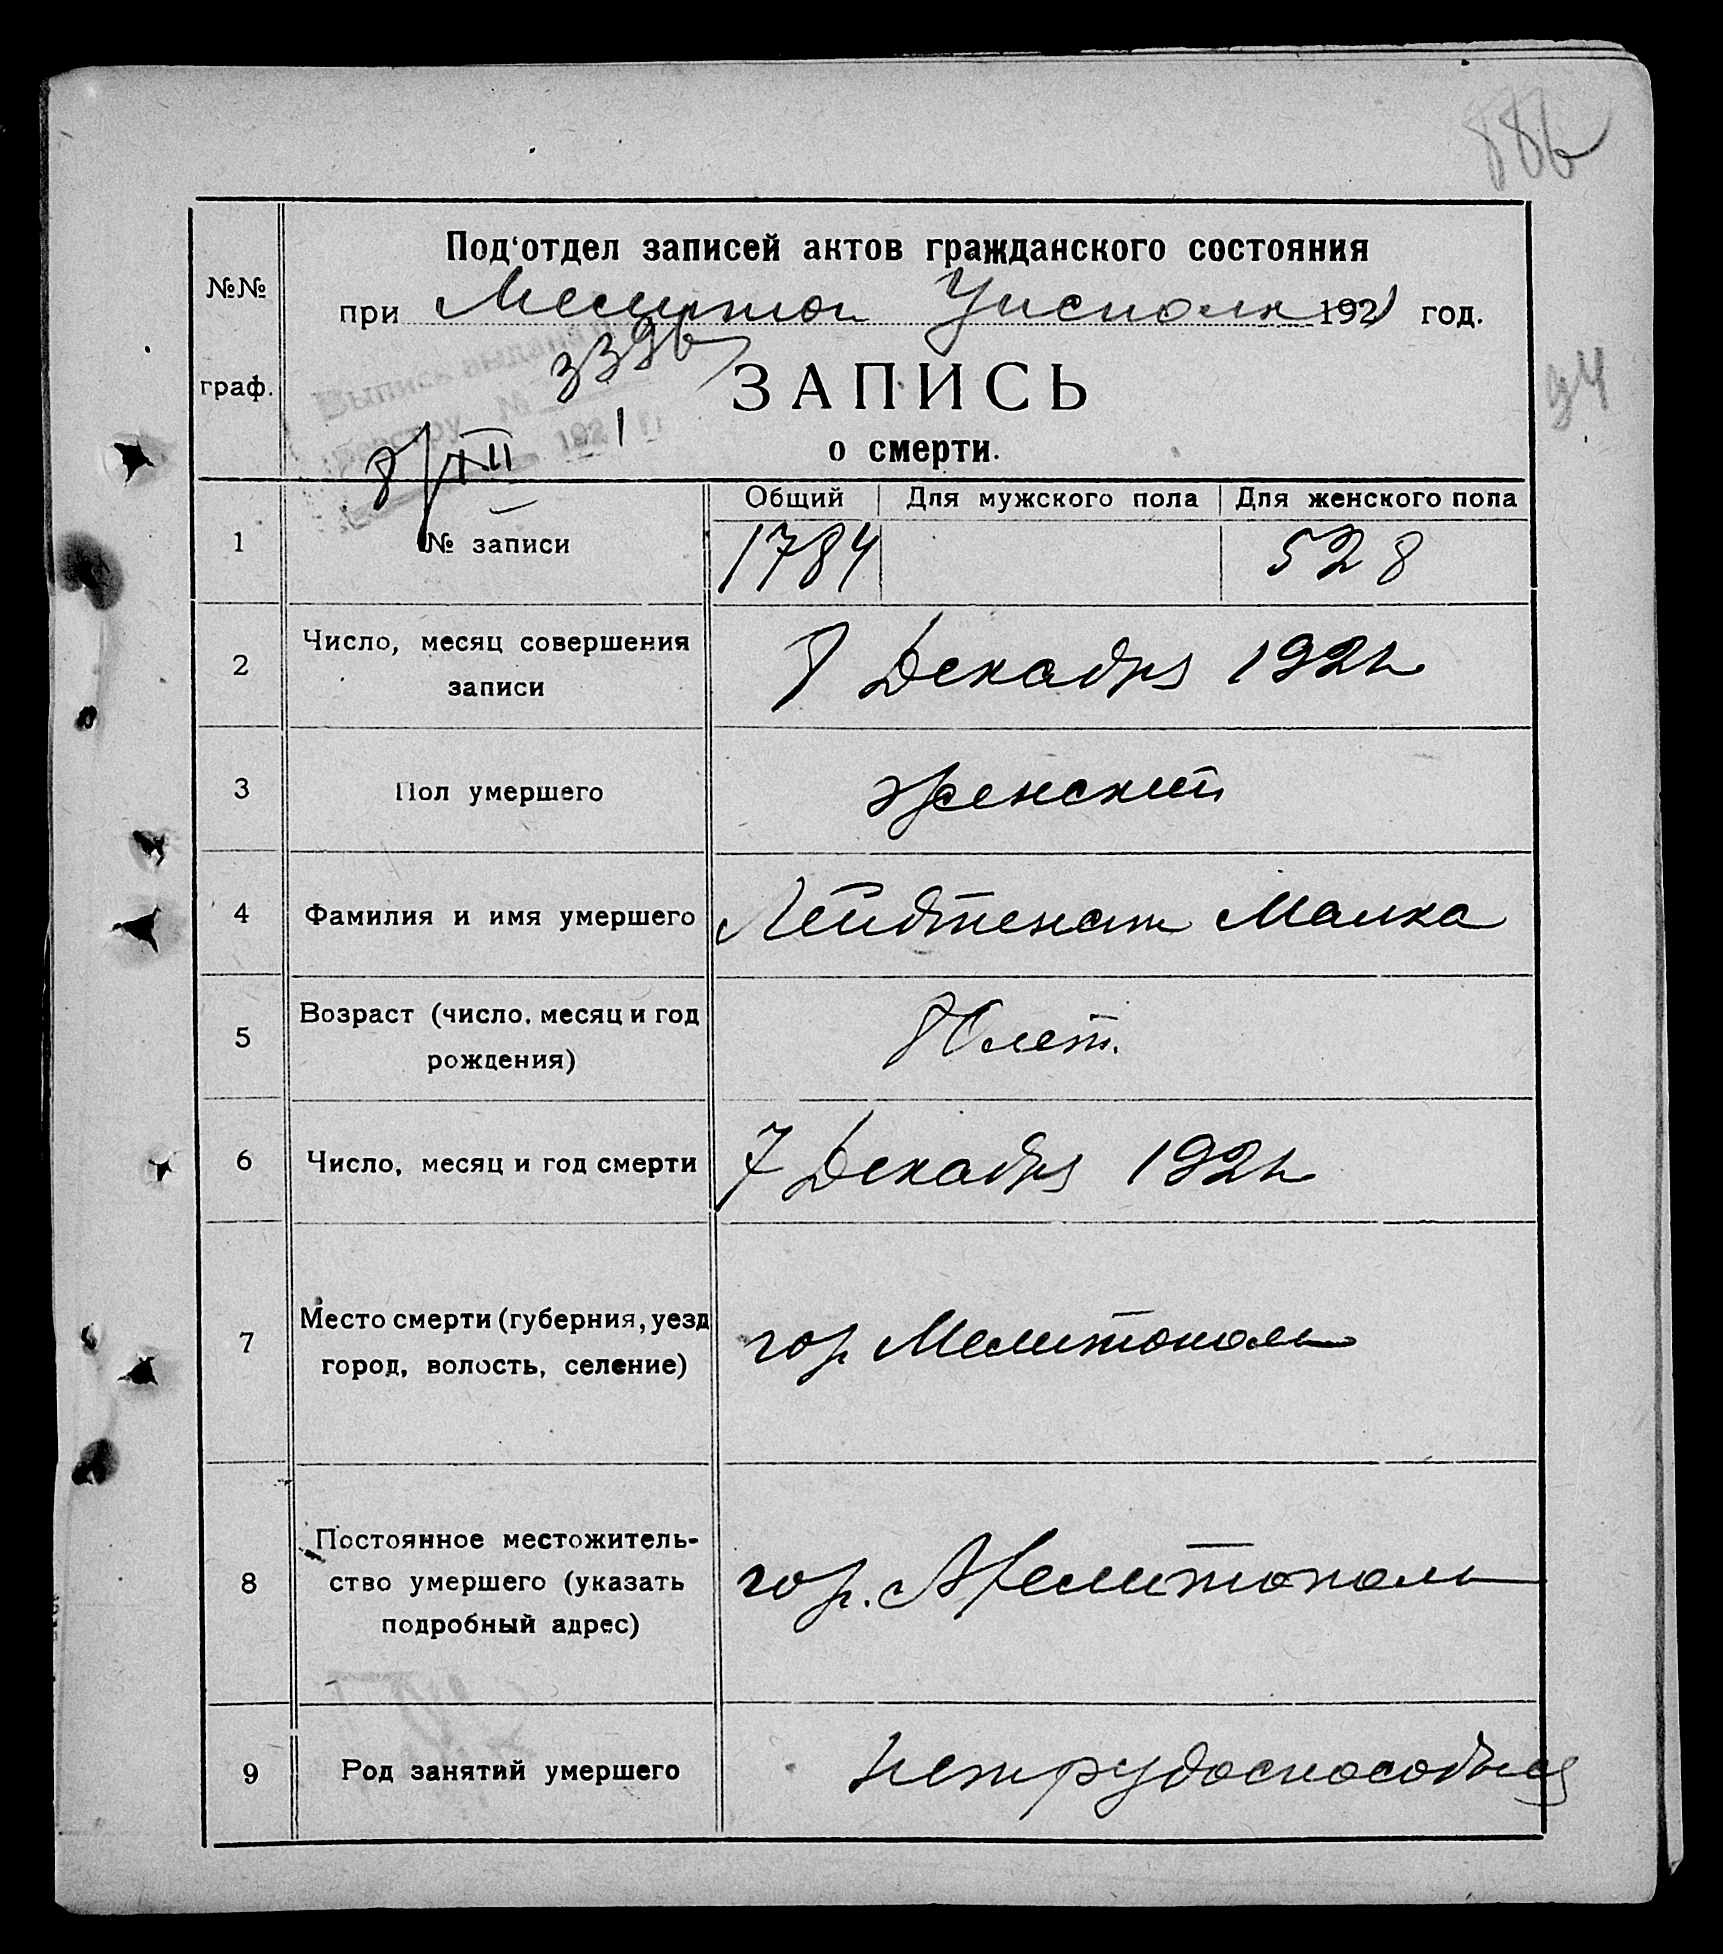 886
Под'отдел записей актов гражданского состояния
№№
при Мелитоп Уисполк 1921 год.
Выписк выдана
3396
граф.
ЗАПИСЬ
94
реестру № 1921 г.
о смерти.
8/XII
Общий Для мужского пола Для женского пола
1 № записи 1784 528
2 Число, месяц совершения
записи
8 Декабря 1921
3 Пол умершего женский
4 Фамилия и имя умершего Лейбтенант Малка
5 Возраст (число, месяц и год
рождения)
80 лет.
6 Число, месяц и год смерти 7 Декабря 1921
7 Место смерти (губерния, уезд
город, волость, селение)
гор Мелитополь
8 Постоянное местожитель-
ство умершего (указать
подробный адрес)
гор. Мелитополь
9 Род занятий умершего нетрудоспособная